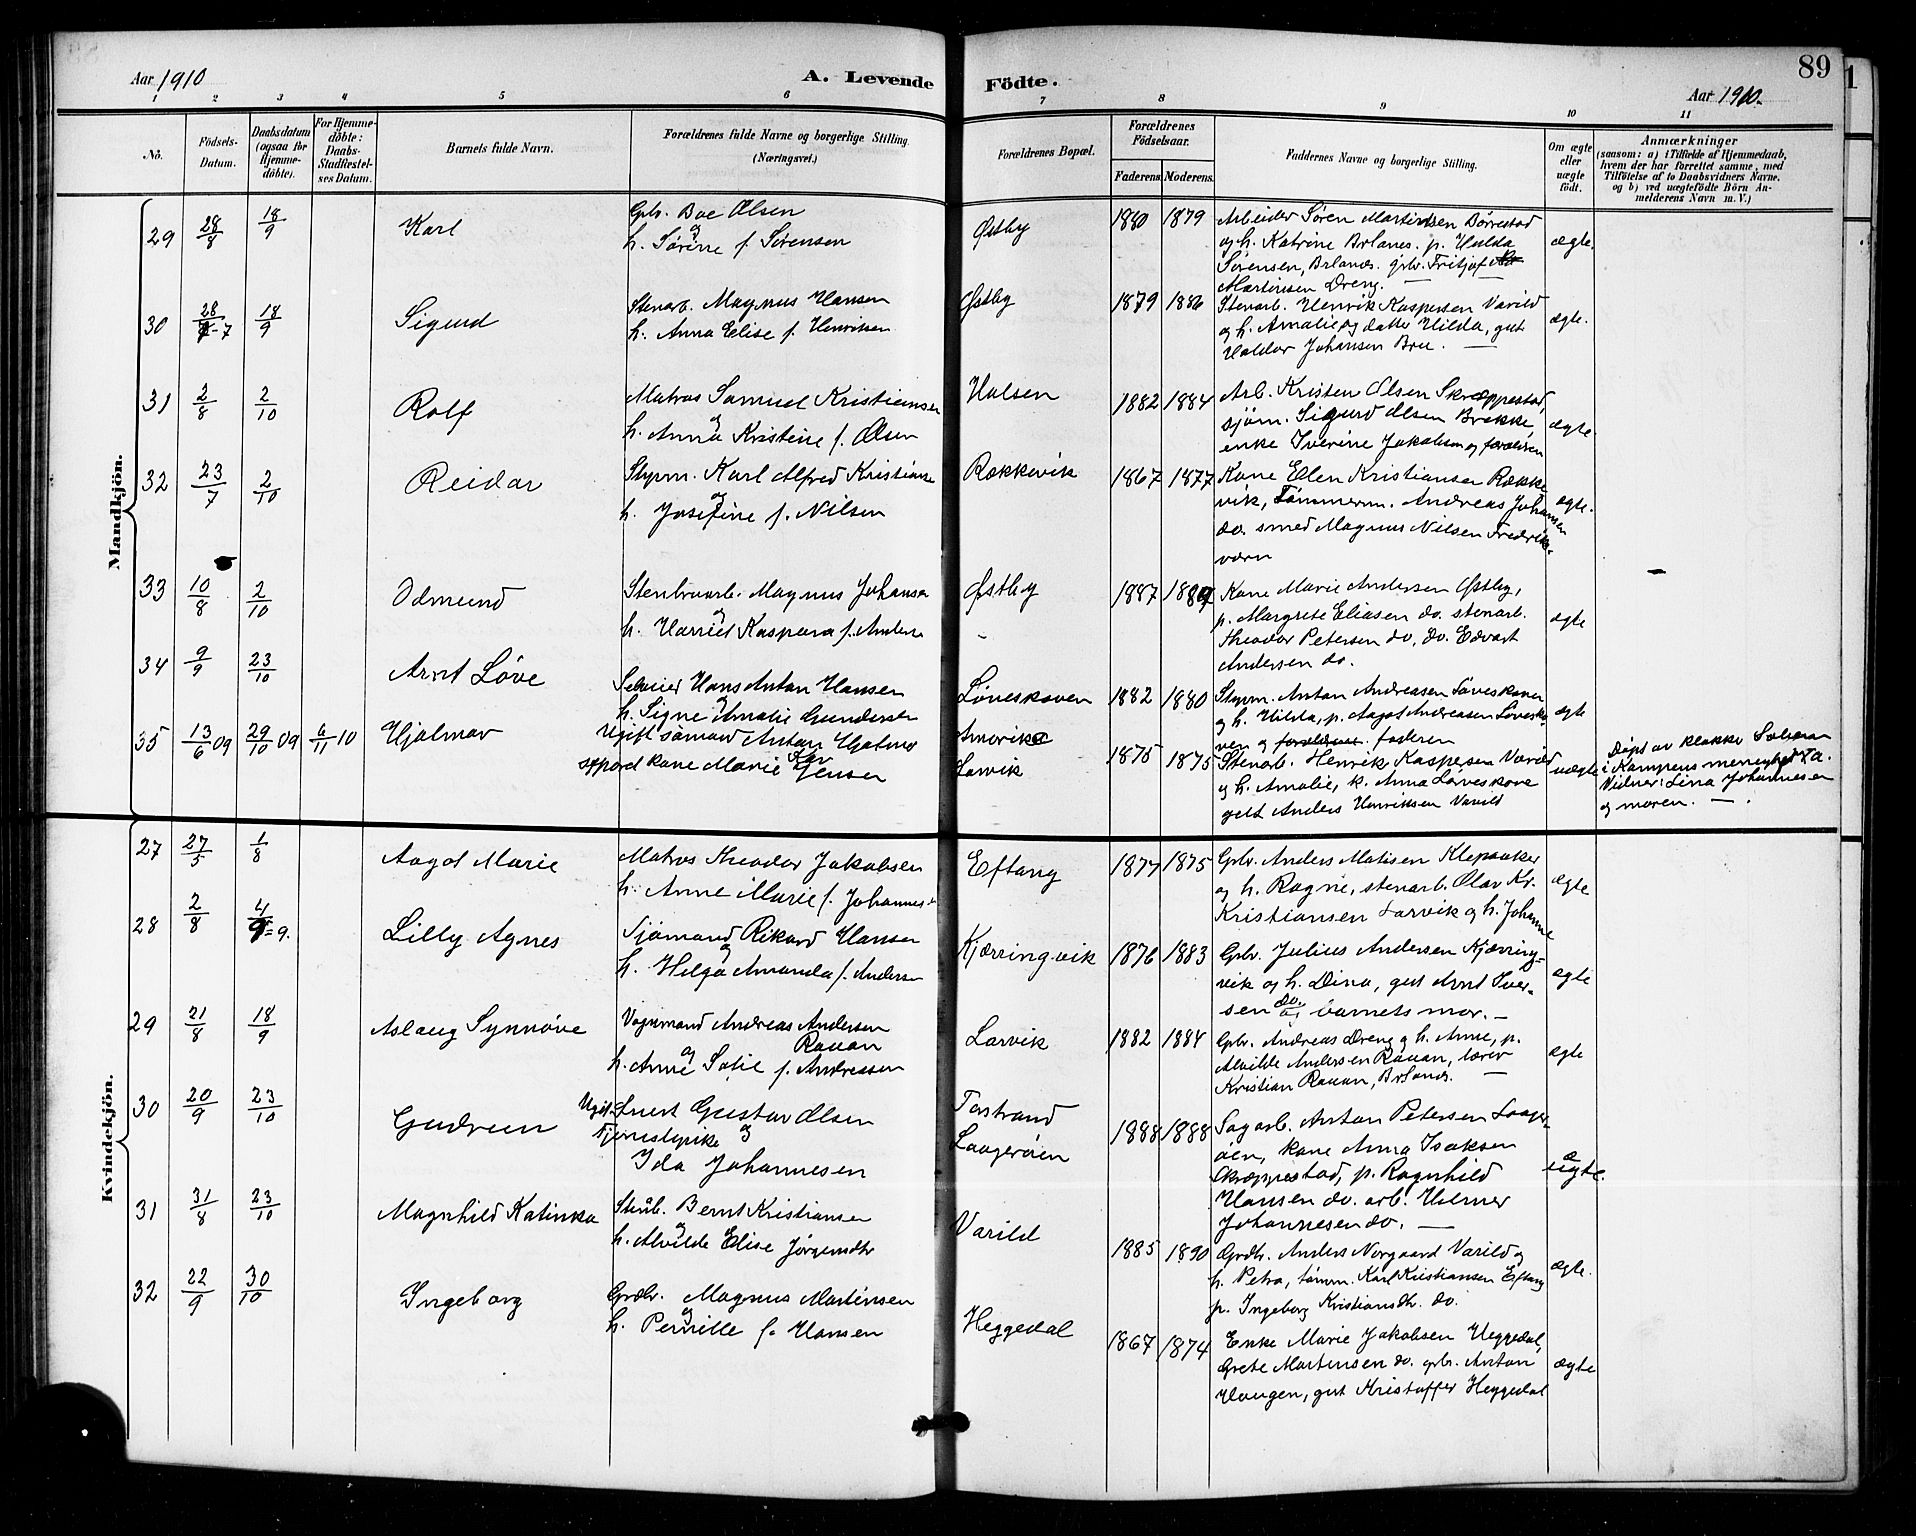 Aar 1910
A. Levende
Födte.
Aar 1910.
89
1 2 3 4 5 6 7 8 9 10 11
No.
Födsels-
Datum.
Daabsdatum
(ogsaa for
Hjemme-
döbte).
For Hjemme-
döbte:
Daabs-
Stadfæstel-
ses Datum.
Barnets fulde Navn.
Forældrenes fulde Navne og borgerlige Stilling.
(Næringsvei.)
Forældrenes Bopæl.
Forældrenes
Födselsaar.
Faderens.
Moderens.
Faddernes Navne og borgerlige Stilling.
Om ægte
eller
uægte
født.
Anmærkninger
(saasom: a) i Tilfælde af Hjemmedaab,
hvem der har forrettet samme, med
Tilföielse af to Daabsvidners Navne,
og b) ved uægtefödte Börn An-
melderens Navn m. V.)
Mandkjön.
29 28/8 18/9 Karl
Gbr. Boe Olsen
og
h. Sørine f. Sørensen
Østby 1880 1879
Arbeider Søren Martinsen Börrestad
og h. Katrine Brlanes. p. Hulda
Sørensen, Brlands. gbr. Fritjof
Martinsen Dreng.
ægte.
30 28/7 18/9 Sigurd
Stenarb. Magnus Hansen
h. Anna Elise f. Henriksen
Østby 1879 1886
Stenarb. Henrik Kaspersen Varild
og h. Amalie og datter Hilda, gut
Haldor Johansen Breu.
ægte.
31 2/8 2/10 Rolf
Matros Samuel Kristiansen
og
h. Anna Kristine f. Olsen
Halsen 1882 1884
Arb. Kristen Olsen Skræppestad,
sjöm. Sigurd Olsen Brekke,
enke Iverine Jakobsen og forældren
ægte.
32 23/7 2/10 Reidar
Styrm. Karl Alfred Kristianse
og
h. Josefine f. Nilsen
Rækkevik 1867 1877
Kone Ellen Kristiansen Række
vik, Tömmerm. Andreas Johansen
do. smed Magnus Nilsen Fredriks-
værn
ægte.
33 10/8 2/10 Odmund
Stenbruarb. Magnus Johansen
og
h. Harriet Kaspara f. Anders
Østby 1887 1889
Kone Marie Andersen Østby,
p. Margrete Eliasen do. stenarb.
Theodor Petersen do, do. Edvart
Andersen do.
ægte
34 9/9 23/10 Arnt Löve
Selveier Hans Anton Hansen
og
h. Signe Amalie Gundersen
Löveskoven 1882 1880
Styrm. Anton Andreasen Löveskoven
og h. Hilda, p. Aagot Andreasen Lövesko
ven og forældrene faderen
ægte
35 13/6 09 29/10 09 6/11 10 Hjalmar
Ugift sömand Anton
separ kone Marie Jensen
Amerika
Larvik
1875 1875
Stenarb. Henrik Kaspersen Varild
og h. Amalie, k. Anna Löveskove
gut Anders Henriksen Varild
uægte
Döpt av klokke
i Kampens menighed
Vidner: Lina Johannesen
og moren.
Kvindekjön.
27 27/5 1/8 Aagot Marie
Matros Theodor Jakobsen
h. Anne Marie f. Johannes
Eftang 1877 1875
Gbr. Anders Matisen Klepaaker
og h. Ragne, stenarb. Olav Kr.
Kristiansen Larvik og h. Johanne
ægte
28 2/8 4/9 Lilly Agnes
Sjömand Rikard Hansen
og
h. Helga Amanda f. Anders
Kjærringvik 1876 1883
Gbr. Julius Andersen Kjærring-
vik og h. Dina, gut Arnt Iver-
sen do. og barnets mor.
ægte
29 21/8 18/9 Aslaug Synnöve
Vognmand Andreas Andersen
Rauan
og
h. Anne Sofie f. Andreassen
Larvik 1882 1884
Gbr. Andreas Dreng og h. Anne, p.
Alvilde Andersen Rauan, lærer
Kristian Rauan, Brlands.
ægte
30 20/9 23/10 Gudrun
Ugift Snert Gustav Olsen
Tjenestepike og
Ida Johannesen
Torstrand
Laagerøien
1888 1888
Sagarb. Anton Petersen Laager-
öien, kone Anna Isaksen
Skræppestad, p. Ragnhild
Hansen do. arb. Helmer
Johannesen do.
uægte.
31 31/8 23/10 Magnhild Katinka
Stenb. Bernt Kristiansen
og
h. Alvilde Elise Jørgensdtr
Varild 1885 1890
Grdbr. Anders Norgaard Varild og
h. Petra, tömm. Karl Kristiansen Eftang
p. Ingeborg Kristiansdtr. do.
ægte.
32 22/9 30/10 Ingeborg
Grdbr. Magnus Martinsen
og
h. Pernille f. Hansen
Heggedal 1867 1874
Enke Marie Jakobsen Heggedal,
Grete Martinsen do. gbr. Anton
Haugen, gut Kristoffer Heggedal
ægte